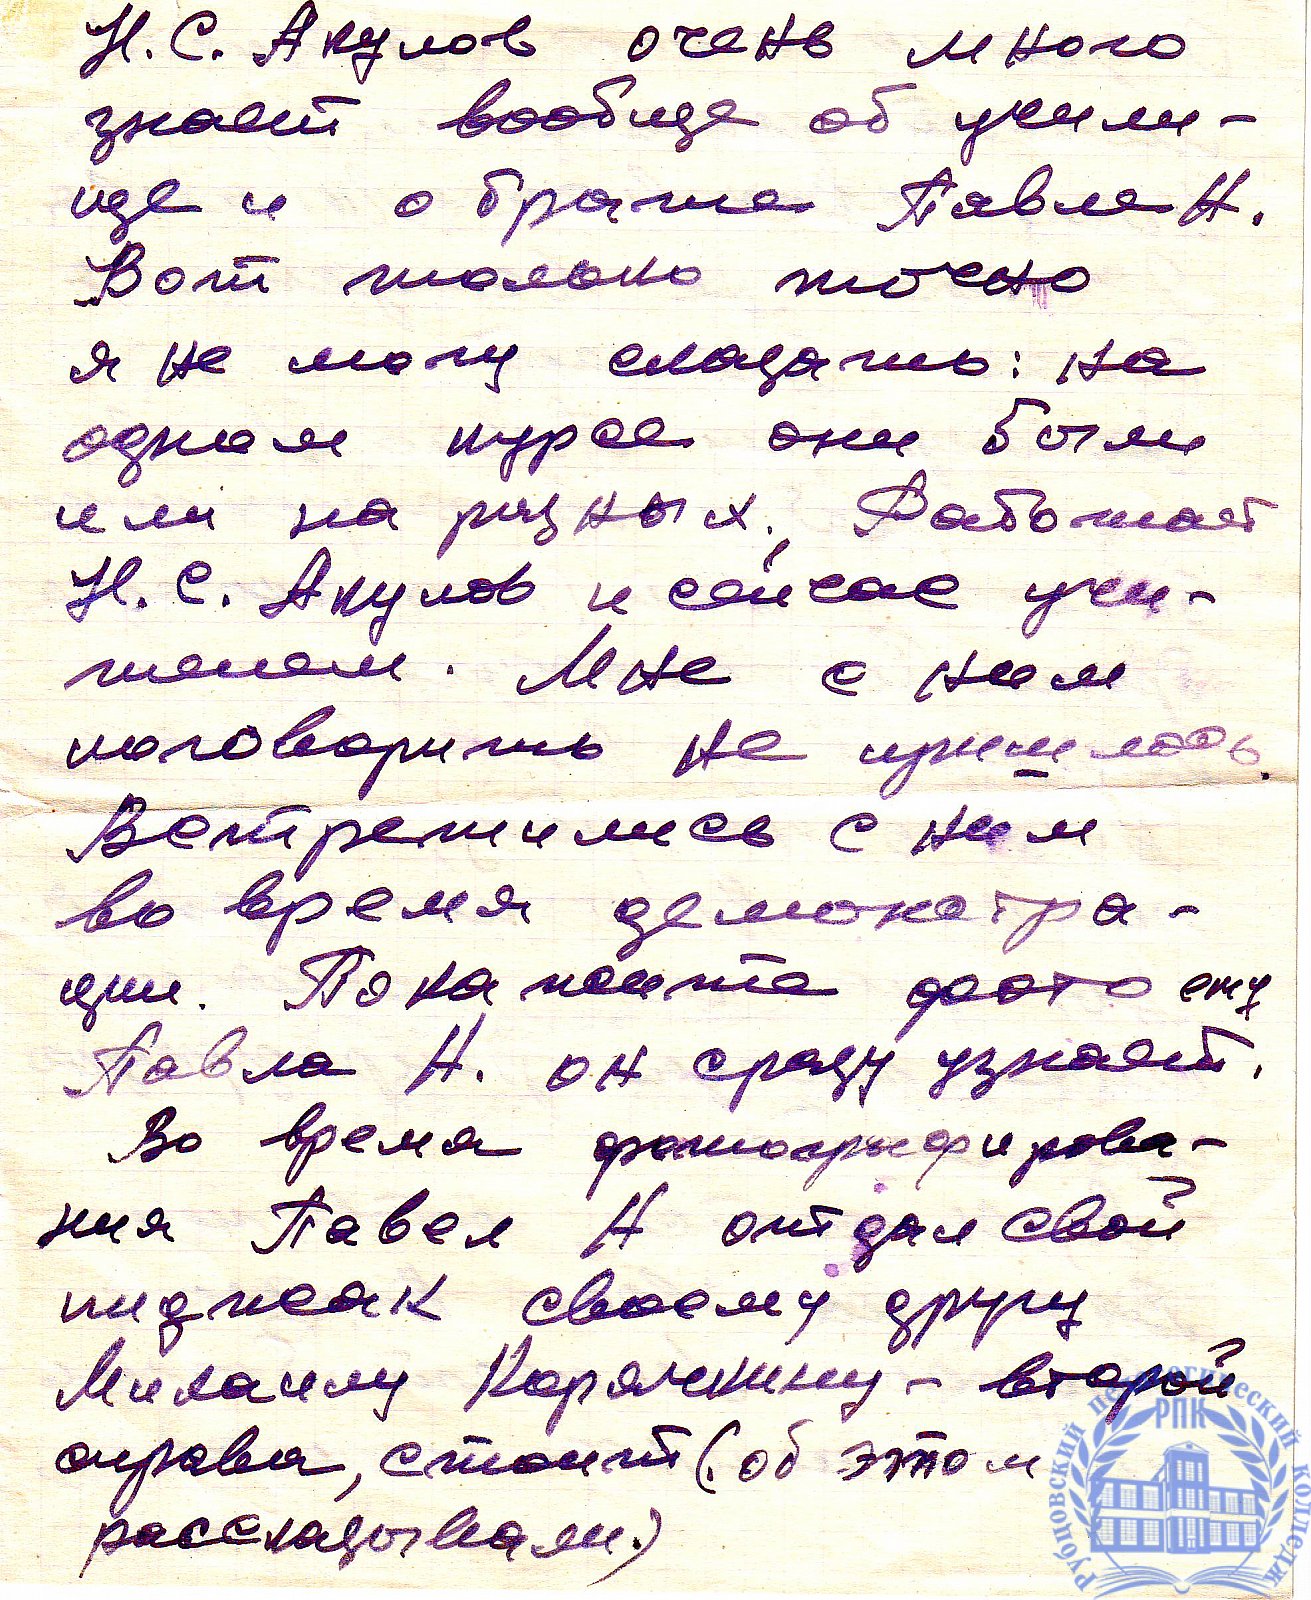 Н. С. Акулов очень много
знает вообще об учили-
ще и о брате Павле Н.
Вот только точно
я не могу сказать: на
одном курсе они были
или на разных. Работает
Н. С. Акулов и сейчас учи-
телем. Мне с ним
поговорить не пришлось.
Встретились с ним
во время демонстра-
ции. Покажите фото ему
Павла Н. он сразу узнает.
Во время фотографирова-
ния Павел Н отдал свой
пиджак своему другу
Михаилу Корячкину - второй
справа, стоит (об этом
рассказывали.)
Рубцовский педагогический колледж
РПК